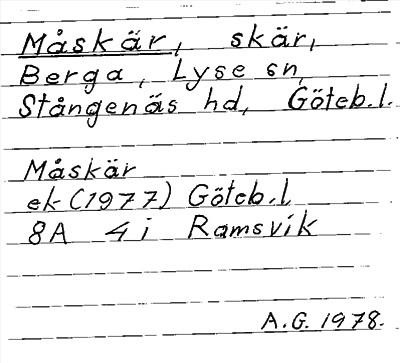 Måskär, skär,
Berga, Lyse sn,
Stångenäs hd, Göteb.l.
Måskär
ek (1977) Göteb.l.
8A 4i Ramsvik
A.G. 1978.